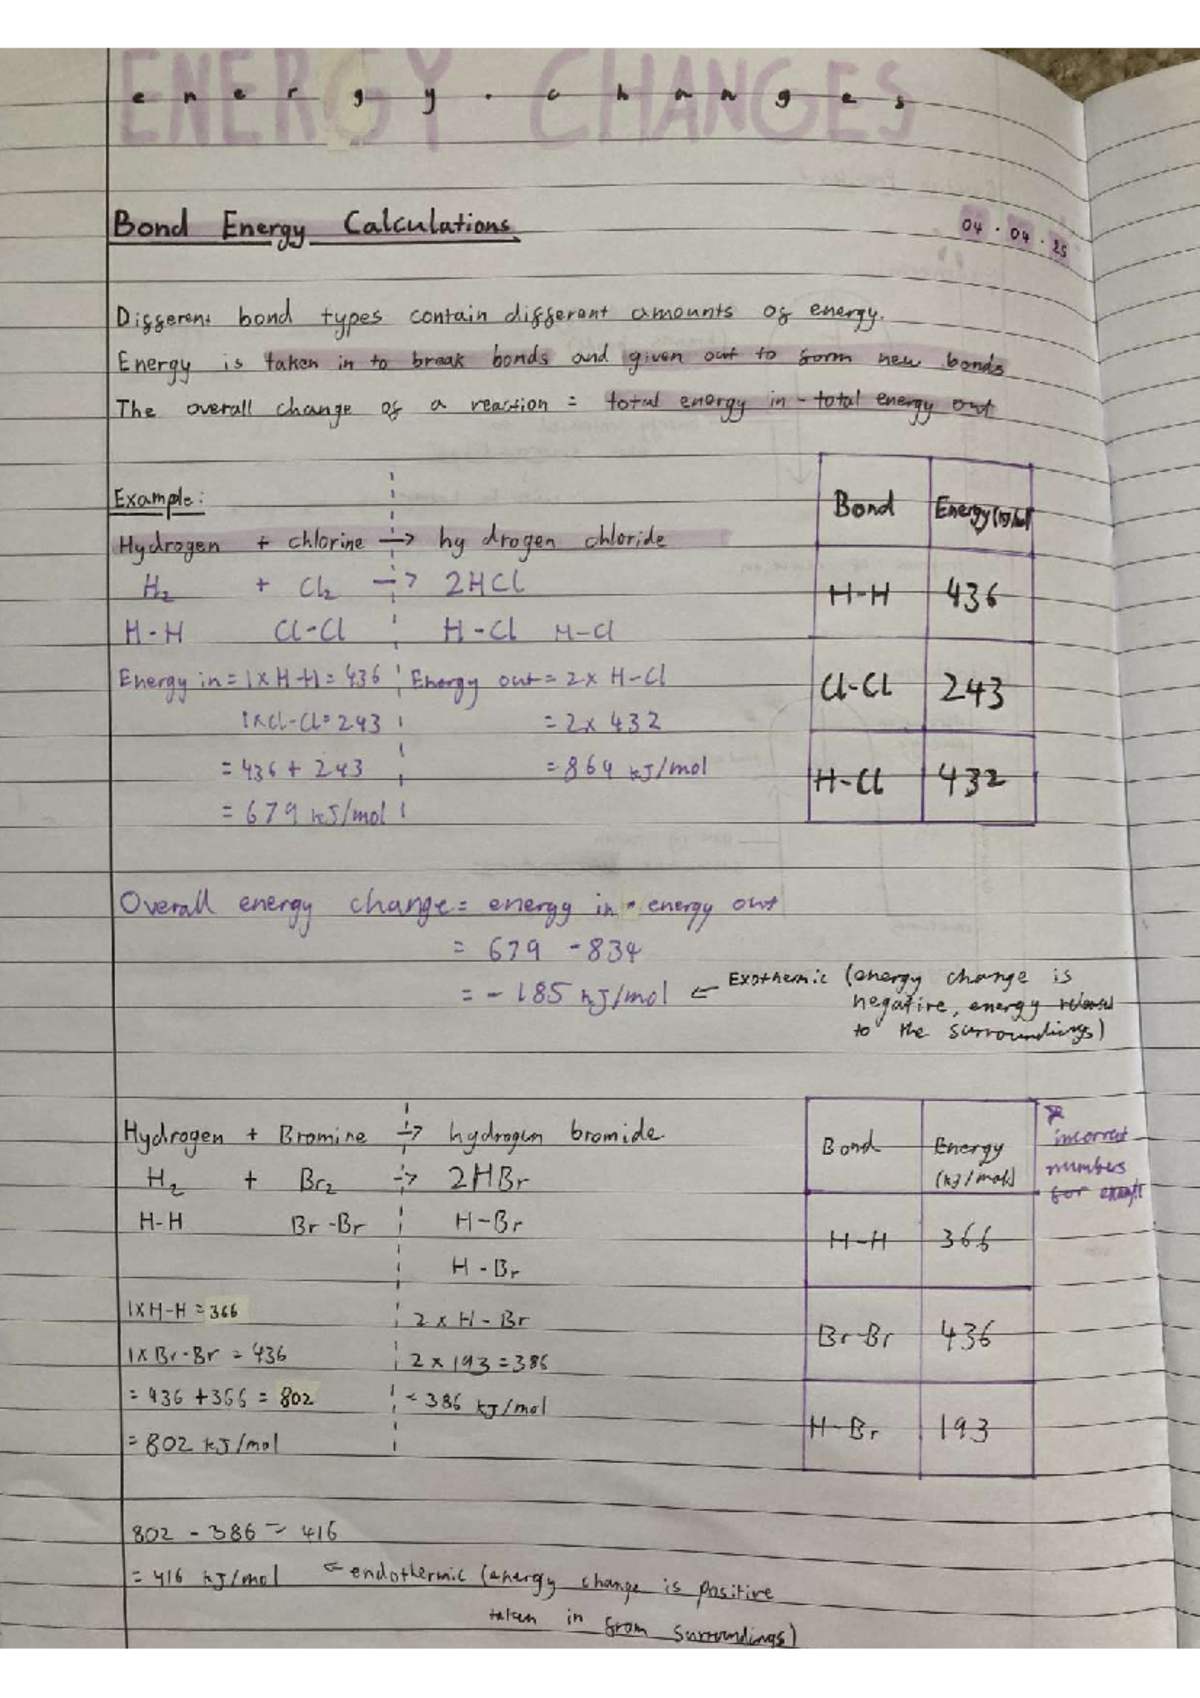 ENERGY CHANGES
energy.changes
Bond Energy Calculations
04.04.25
Different bond types contain different amounts of energy.
Energy is taken in to break bonds and given out to form new bonds
The overall change of a reaction = total energy in - total energy out
Example:
Hydrogen + chlorine → hydrogen chloride
H₂ + Cl₂ → 2HCl
H-H Cl-Cl H-Cl H-Cl
Energy in = 1×H-H = 436 Energy out = 2× H-Cl
1×Cl-Cl = 243 = 2× 432
= 436 + 243 = 864 kJ/mol
= 679 kJ/mol
Bond Energy (kJ/mol)
H-H 436
Cl-Cl 243
H-Cl 432
Overall energy change = energy in - energy out
= 679 - 834
= - 185 kJ/mol ← Exothermic (energy change is
negative, energy released
to the surroundings)
Hydrogen + Bromine → hydrogen bromide
H₂ + Br₂ → 2HBr
H-H Br-Br H-Br
H-Br
1×H-H = 366 2 × H-Br
1×Br-Br = 436 2 × 193 = 386
= 436 + 366 = 802 = 386 kJ/mol
= 802 kJ/mol
Bond Energy (kJ/mol)
H-H 366
Br-Br 436
H-Br 193
* incorrect
numbers
for
802 - 386 = 416
= 416 kJ/mol ← endothermic (energy change is positive
taken in from surroundings)